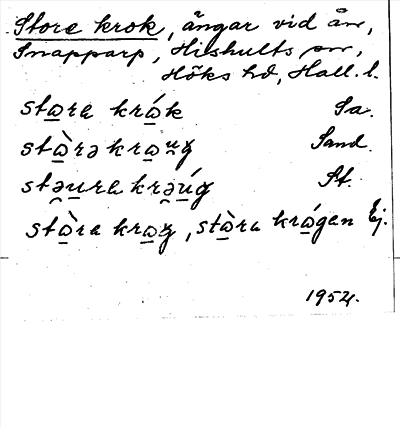 Store krok, ängar vid ån,
Snapparp, Hishults sn,
Höks hd, Hall. l.
stɷra krɷ́k Sa.
stɷ̀rə krɷu̯g Sand.
stəu̯ra krəú̯g St.
stɷ̀ra krɷg, stɷ̀ra krɷ́gen Ej.
1954.